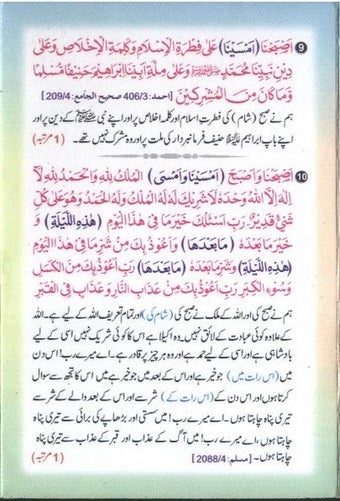 9 اَصْبَحْنَا (اَمْسَيْنَا) عَلٰى فِطْرَةِ الْاِسْلَامِ وَكَلِمَةِ الْاِخْلَاصِ وَعَلٰى
دِيْنِ نَبِيِّنَا مُحَمَّدٍ ﷺ وَعَلٰى مِلَّةِ اَبِيْنَا اِبْرَاهِيْمَ حَنِيْفًا مُّسْلِمًا
وَّمَا كَانَ مِنَ الْمُشْرِكِيْنَ [احمد: 406/3 صحیح الجامع: 209/4]
ہم نے صبح کی (شام) کی فطرتِ اسلام اور کلمہ اخلاص پر اور اپنے نبی ﷺ کے دین پر اور
اپنے باپ ابراہیم علیہ السلام حنیف فرمانبردار کی ملت پر اور وہ مشرک نہیں تھے۔ (1 مرتبہ)
10 اَصْبَحْنَا وَاَصْبَحَ (اَمْسَيْنَا وَاَمْسَى) الْمُلْكُ لِلّٰهِ وَالْحَمْدُ لِلّٰهِ لَا
اِلٰهَ اِلَّا اللّٰهُ وَحْدَهُ لَا شَرِيْكَ لَهُ لَهُ الْمُلْكُ وَلَهُ الْحَمْدُ وَهُوَ عَلٰى كُلِّ
شَيْءٍ قَدِيْرٌ، رَبِّ اَسْئَلُكَ خَيْرَ مَا فِيْ هٰذَا الْيَوْمِ (هٰذِهِ اللَّيْلَةِ) وَ
خَيْرَ مَا بَعْدَهُ (مَا بَعْدَهَا) وَاَعُوْذُ بِكَ مِنْ شَرِّ مَا فِيْ هٰذَا الْيَوْمِ
(هٰذِهِ اللَّيْلَةِ) وَشَرِّ مَا بَعْدَهُ (مَا بَعْدَهَا) رَبِّ اَعُوْذُ بِكَ مِنَ الْكَسَلِ
وَسُوْٓءِ الْكِبَرِ رَبِّ اَعُوْذُ بِكَ مِنْ عَذَابِ النَّارِ وَعَذَابٍ فِي الْقَبْرِ
ہم نے صبح کی اور اللہ کے ملک نے صبح کی (شام کی) اور تمام تعریف اللہ کے لیے ہے۔ اللہ
کے علاوہ کوئی عبادت کے لائق نہیں۔ وہ اکیلا ہے اس کا کوئی شریک نہیں اسی کے لیے
بادشاہی ہے اور اسی کے لیے حمد ہے اور وہ ہر چیز پر قادر ہے۔ اے میرے رب! اس دن
میں (اس رات میں) جو خیر ہے اور اس کے بعد میں جو خیر ہے میں اس کا تجھ سے سوال
کرتا ہوں اور اس دن کے (اس رات کے) شر سے اور اس کے بعد والے کے شر سے
تیری پناہ چاہتا ہوں۔ اے میرے رب! میں سستی اور بڑھاپے کی برائی سے تیری پناہ
چاہتا ہوں، اے میرے رب! میں آگ کے عذاب اور قبر کے عذاب سے تیری پناہ
چاہتا ہوں۔ [مسلم: 2088/4] (1 مرتبہ)